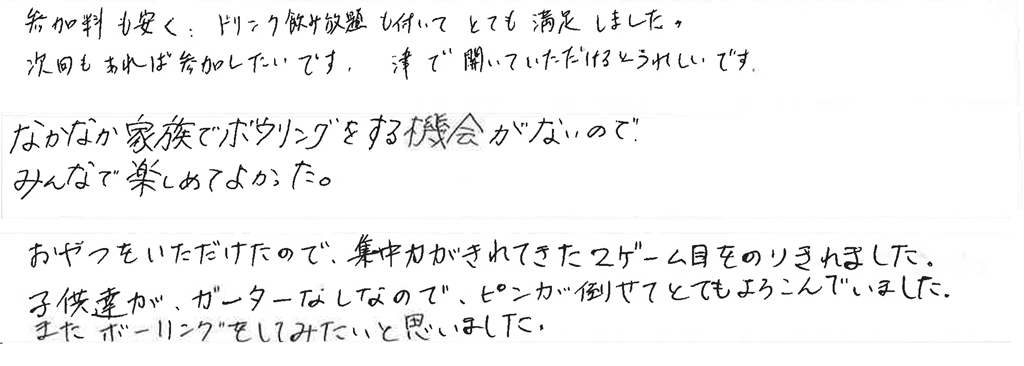 参加料も安く、ドリンク飲み放題も付いてとても満足しました。
次回もあれば参加したいです。津で開いていただけるとうれしいです。
なかなか家族でボウリングをする機会がないので、
みんなで楽しめてよかった。
おやつをいただけたので、集中力がきれてきた2ゲーム目をのりきれました。
子供達が、ガーターなしなので、ピンが倒せてとてもよろこんでいました。
またボーリングをしてみたいと思いました。